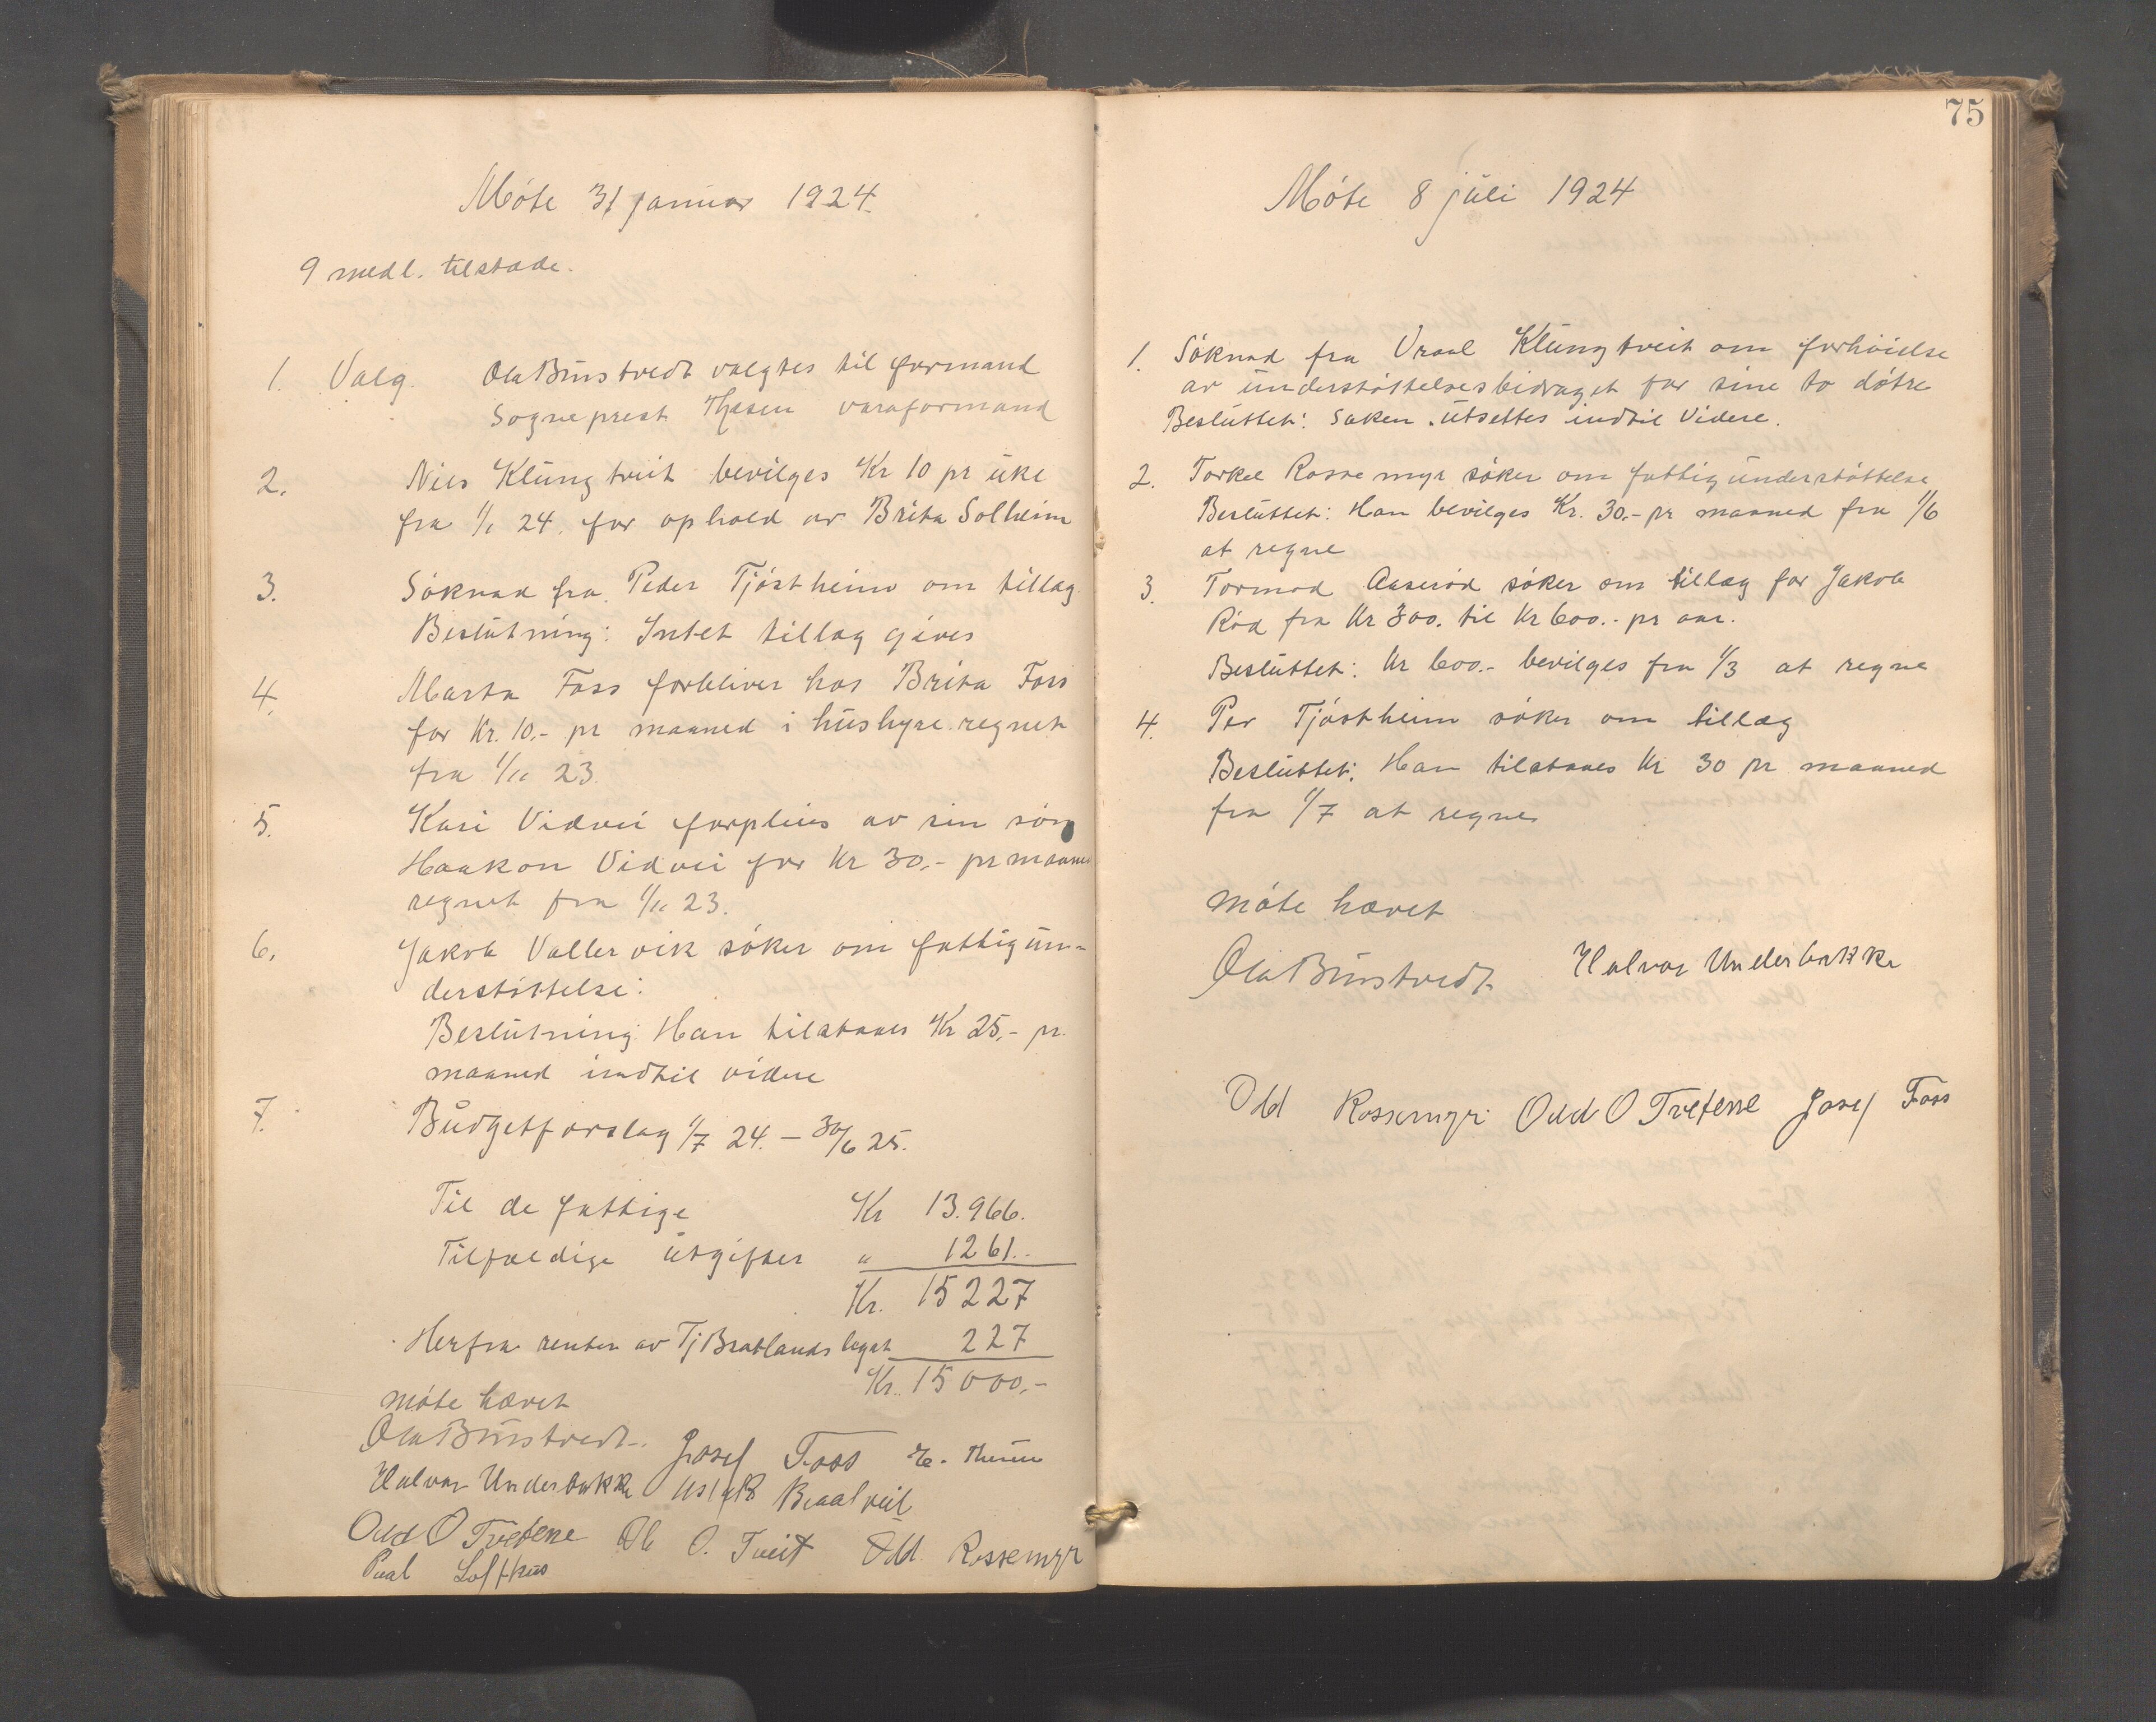 Møte 31 januar 1924.
9 medl. tilstade.
1. Valg. Ola Bunstvedt valgtes til formand
Sogneprest Thesen varaformand
2. Niels Klungtveit bevilges Kr 10 pr uke
fra 1/1 24. for ophold av Brita Solheim
3. Søknad fra Peder Tjøstheim om tillæg
Beslutning: Intet tillæg gives
4. Marta Foss forbliver hos Brita Foss
for Kr. 10.- pr maaned i hushyre regnet
fra 1/11 23.
5. Kari Vidvei forpleies av sin søn
Haakon Vidvei for Kr 30.- pr maaned
regnet fra 1/11 23.
6. Jakob Vallervik søker om fattigun-
derstøttelse:
Beslutning: Han tilstaaes Kr 25,- pr.
maaned indtil videre
7. Budgetforslag 1/7 24. – 30/6 25.
Til de fattige Kr 13.966.
Tilfældige utgifter " 1261.-
Kr. 15227
Herfra renter av Tj Bratlands legat 227
Kr. 15000,-
Møte hævet
Ola Bunstvedt. Josef Foss
Halvor Underbakke Aslak Braatveit
Odd O Tvetene Ole O. Tveit Odd Rossemyr
Paal Lofthus
75
Møte 8 juli 1924
1. Søknad fra Vraal Klungtveit om forhøielse
av understøttelsesbidraget for sine to døtre
Besluttet: Saken utsettes indtil videre.
2. Torkel Rossemyr søker om fattigunderstøttelse
Besluttet: Han bevilges Kr. 30.- pr maaned fra 1/6
at regne
3. Tormod Aaserød søker om tillæg for Jakob
Rød fra Kr 300. til Kr 600.- pr aar.
Besluttet: Kr 600.- bevilges fra 1/3 at regne
4. Per Tjøstheim søker om tillæg
Besluttet: Han tilstaaes Kr 30 pr maaned
fra 1/7 at regne
Møte hævet
Ola Bunstvedt. Halvor Underbakke
Odd Rossemyr Odd O Tvetene Josef Foss